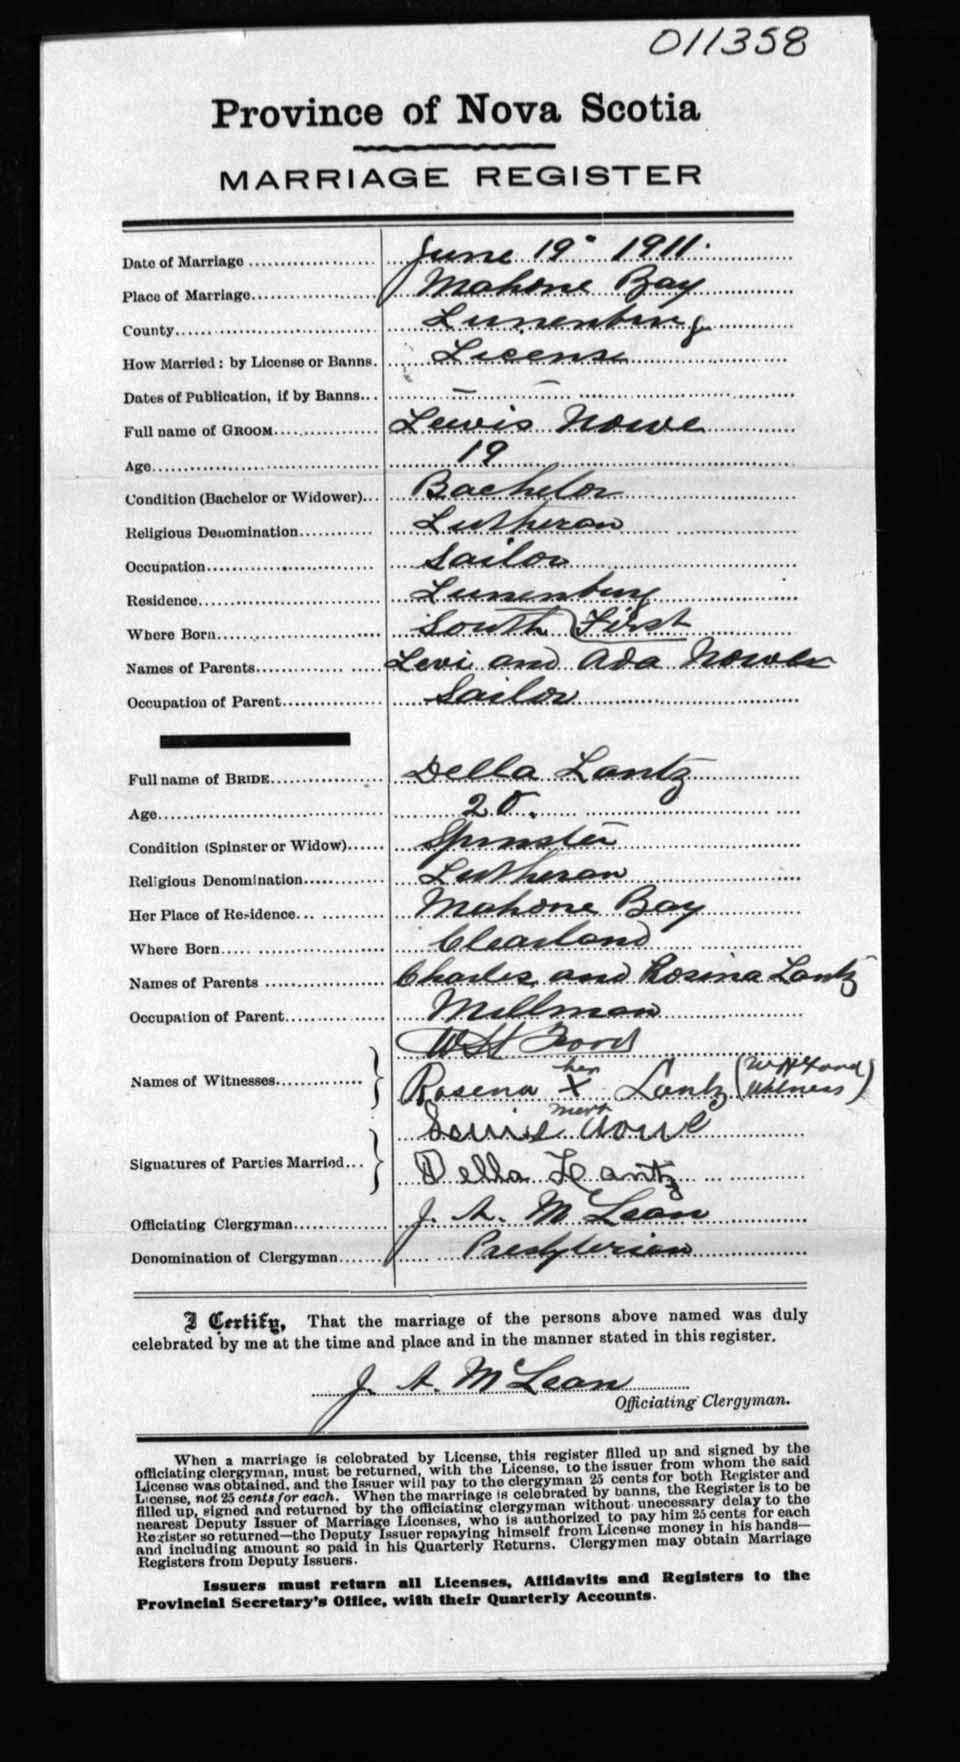 011358
Province of Nova Scotia
MARRIAGE REGISTER
Date of Marriage June 19 1911.
Place of Marriage Mahone Bay
County Lunenburg
How Married: by License or Banns. License
Dates of Publication, if by Banns — —
Full name of GROOM Lewis Nowe
Age 19
Condition (Bachelor or Widower) Bachelor
Religious Denomination Lutheran
Occupation Sailor
Residence Lunenburg
Where Born South (First
Names of Parents Levi and Ada Nowe
Occupation of Parent Sailor
Full name of BRIDE Della Lantz
Age 20.
Condition (Spinster or Widow) Spinster
Religious Denomination Lutheran
Her Place of Residence Mahone Bay
Where Born Clearland
Names of Parents Charles and Rosina Lantz
Occupation of Parent Millman
W H Ford
her
Names of Witnesses Rosena X Lantz (W H Ford Witness)
mark
Nowe
Signatures of Parties Married Della Lantz
Officiating Clergyman J. A. McLean
Denomination of Clergyman Presbyterian
I Certify, That the marriage of the persons above named was duly
celebrated by me at the time and place and in the manner stated in this register.
J. A. McLean
Officiating Clergyman.
When a marriage is celebrated by License, this register filled up and signed by the
officiating clergyman, must be returned, with the License, to the issuer from whom the said
License was obtained, and the Issuer will pay to the clergyman 25 cents for both Register and
License, not 25 cents for each. When the marriage is celebrated by banns, the Register is to be
filled up, signed and returned by the officiating clergyman without unnecessary delay to the
nearest Deputy Issuer of Marriage Licenses, who is authorized to pay him 25 cents for each
Register so returned—the Deputy Issuer repaying himself from License money in his hands—
and including amount so paid in his Quarterly Returns. Clergymen may obtain Marriage
Registers from Deputy Issuers.
Issuers must return all Licenses, Affidavits and Registers to the
Provincial Secretary's Office, with their Quarterly Accounts.